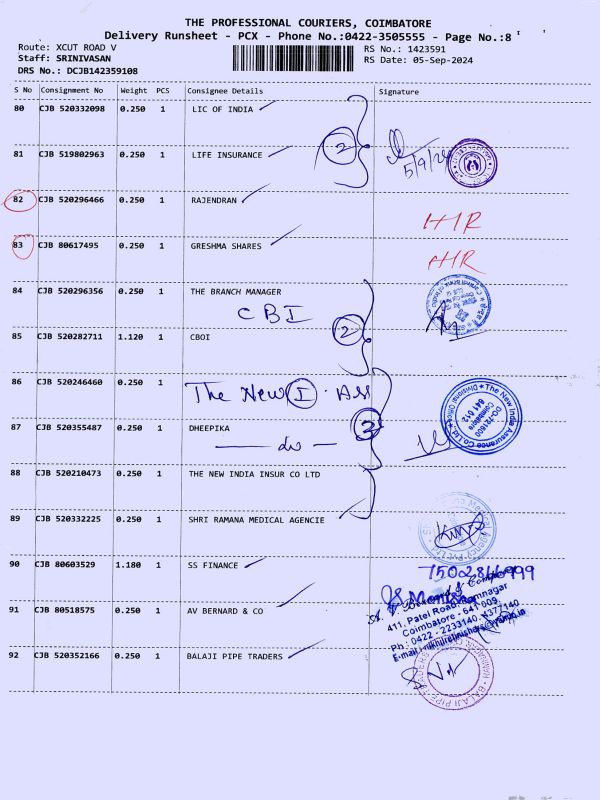 THE PROFESSIONAL COURIERS, COIMBATORE
Delivery Runsheet - PCX - Phone No.:0422-3505555 - Page No.:8
Route: XCUT ROAD V
RS No.: 1423591
Staff: SRINIVASAN
RS Date: 05-Sep-2024
DRS No.: DCJB142359108
S No Consignment No Weight PCS Consignee Details Signature
80 CJB 520332098 0.250 1 LIC OF INDIA
2
5/9/24
81 CJB 519802963 0.250 1 LIFE INSURANCE
82 CJB 520296466 0.250 1 RAJENDRAN
HR
83 CJB 80617495 0.250 1 GRESHMA SHARES
HR
84 CJB 520296356 0.250 1 THE BRANCH MANAGER
CBI
2
85 CJB 520282711 1.120 1 CBOI
86 CJB 520246460 0.250 1 The New I. Ass
3
The New India Assurance Co. Ltd.
Divisional Office
DO-721600
Coimbatore
641 012
87 CJB 520355487 0.250 1 DHEEPIKA
— do —
88 CJB 520210473 0.250 1 THE NEW INDIA INSUR CO LTD
89 CJB 520332225 0.250 1 SHRI RAMANA MEDICAL AGENCIE
Medical Agency Pvt Ltd
90 CJB 80603529 1.180 1 SS FINANCE
91 CJB 80518575 0.250 1 AV BERNARD & CO
411, Patel Road, Ramnagar
Coimbatore - 641 009.
Ph : 0422 - 2233140, 4377140
92 CJB 520352166 0.250 1 BALAJI PIPE TRADERS
BALAJI PIPE TRADERS